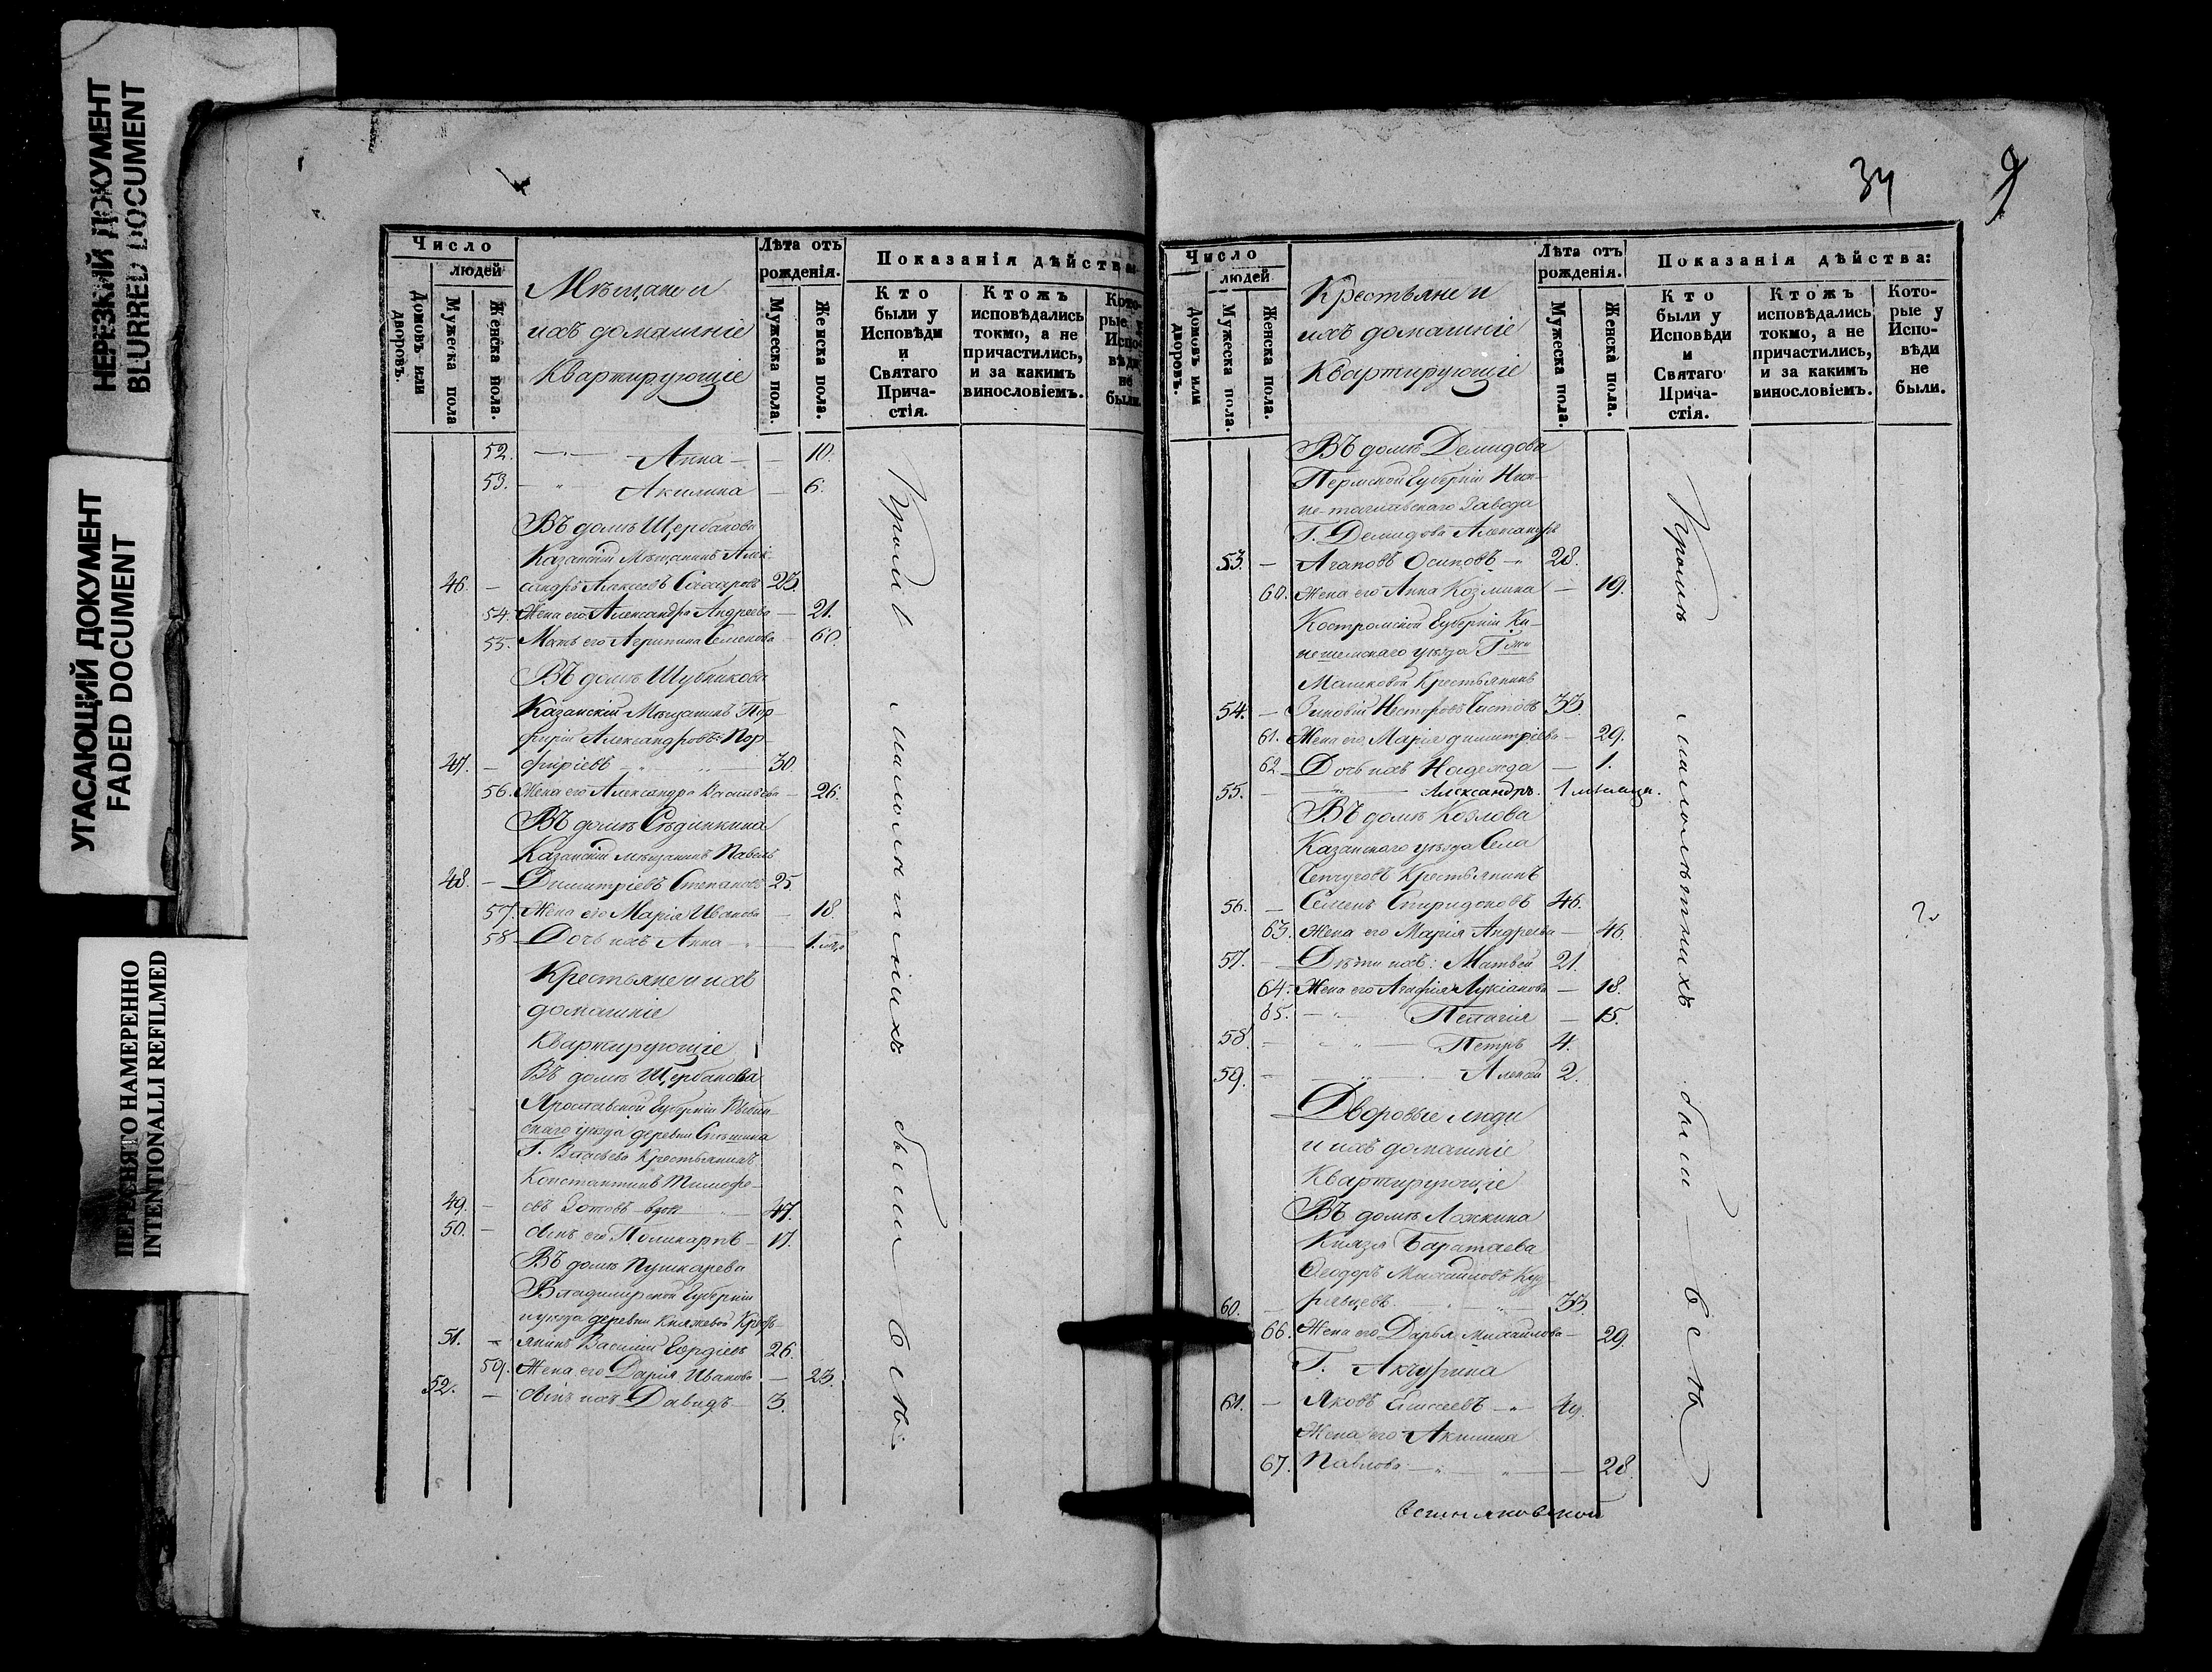 НЕРЕЗКИЙ ДОКУМЕНТ
BLURRED DOCUMENT
УГАСАЮЩИЙ ДОКУМЕНТ
FADED DOCUMENT
ПЕРЕСНЯТО НАМЕРЕННО
INTENTIONALLI REFILMED
Число
людей
Домовъ или дворовъ.
Мужеска пола
Женска пола.
Мѣщане и
ихъ домашніе
Квартирующіе
Лѣта отъ
рожденія.
Мужеска пола.
Женска пола.
Показанія дѣйства:
Кто
были у
Исповѣди
и
Святаго
Прича-
стія.
Ктожъ
исповѣдались
токмо, а не
причастились,
и за какимъ
винословіемъ.
Кото-
рые у
Испо-
вѣди
не
были.
52. Анна — 10.
53. Акилина — 6.
Въ домѣ Щербакова
Казанскій Мѣщанинъ Алек-
46. — сандръ Алексѣевъ Сахаровъ 23.
54. Жена его Александра Андреева — 21.
55. Мать его Агрипина Семенова — 60.
Въ домѣ Шубникова
Казанскій Мѣщанинъ Пор-
фирій Александровъ Пор-
47. — фиріевъ 30.
56. Жена его Александра Васильева — 26.
Въ домѣ
Казанскій мѣщанинъ Павелъ
48. — Димитріевъ Степановъ 25
57. Жена его Марія Иванова — 18.
58 Дочь ихъ Анна — 1.
Крестьяне и ихъ
домашніе
Квартирующіе
Въ домѣ Щербакова
Ярославской Губерніи
скаго уѣзда деревни
Г. Крестьянинъ
Константинъ Тимофе-
49. — евъ Зотовъ вдовъ 47.
50. — сынъ его Поликарпъ 17.
Въ домѣ Пушкарева
Владимирской Губерніи
и уѣзда деревни Княжевой Кресть-
51. — янинъ Василій 26.
59. Жена его Дарія Иванова — 23.
52. — сынъ ихъ Давидъ 3.
Кромѣ малолѣтнихъ были всѣ
34
9
Число
людей
Домовъ или дворовъ.
Мужеска пола.
Женска пола.
Крестьяне и
ихъ домашніе
Квартирующіе
Лѣта отъ
рожденія.
Мужеска пола.
Женска пола.
Показанія дѣйства:
Кто
были у
Исповѣди
и
Святаго
Прича-
стія.
Ктожъ
исповѣдались
токмо, а не
причастились,
и за какимъ
винословіемъ.
Кото-
рые у
Испо-
вѣди
не
были.
Въ домѣ Демидова
Пермской Губерніи Ниж-
не-тагильскаго Завода
Г. Демидова Александръ
53. — Агаповъ Осиповъ 28.
60. Жена его Анна Козмина — 19.
Костромской Губерніи Ки-
нешемскаго уѣзда Гжи
Машковой Крестьянинъ
54. — Зиновій Несторовъ Чистовъ 33.
61. Жена его Марія Димитріева — 29.
62 Дочь ихъ Надежда — 1.
55. Александръ. 1 мѣсяца.
Въ домѣ Козлова
Казанскаго уѣзда Села
Чепчуговъ Крестьянинъ
56. — Семенъ Спиридоновъ 46.
63. Жена его Марія Андреева — 46.
57. — Дѣти ихъ: Матвей 21.
64. Жена его Агафія Лукіанова — 18.
65. Пелагія — 15.
58. Петръ 4.
59. Алексѣй 2.
Дворовые люди
и ихъ домашніе
Квартирующіе
Въ домѣ Ложкина
Князя Баратаева
Ѳеодоръ Михаиловъ Куд-
60. — рявцевъ 33.
66. Жена его Дарья Михайлова — 29.
Г. Акчурина
61. — Яковъ Елисеевъ 49.
Жена его Акилина
67. Павлова — 28.
Кромѣ малолѣтнихъ были всѣ